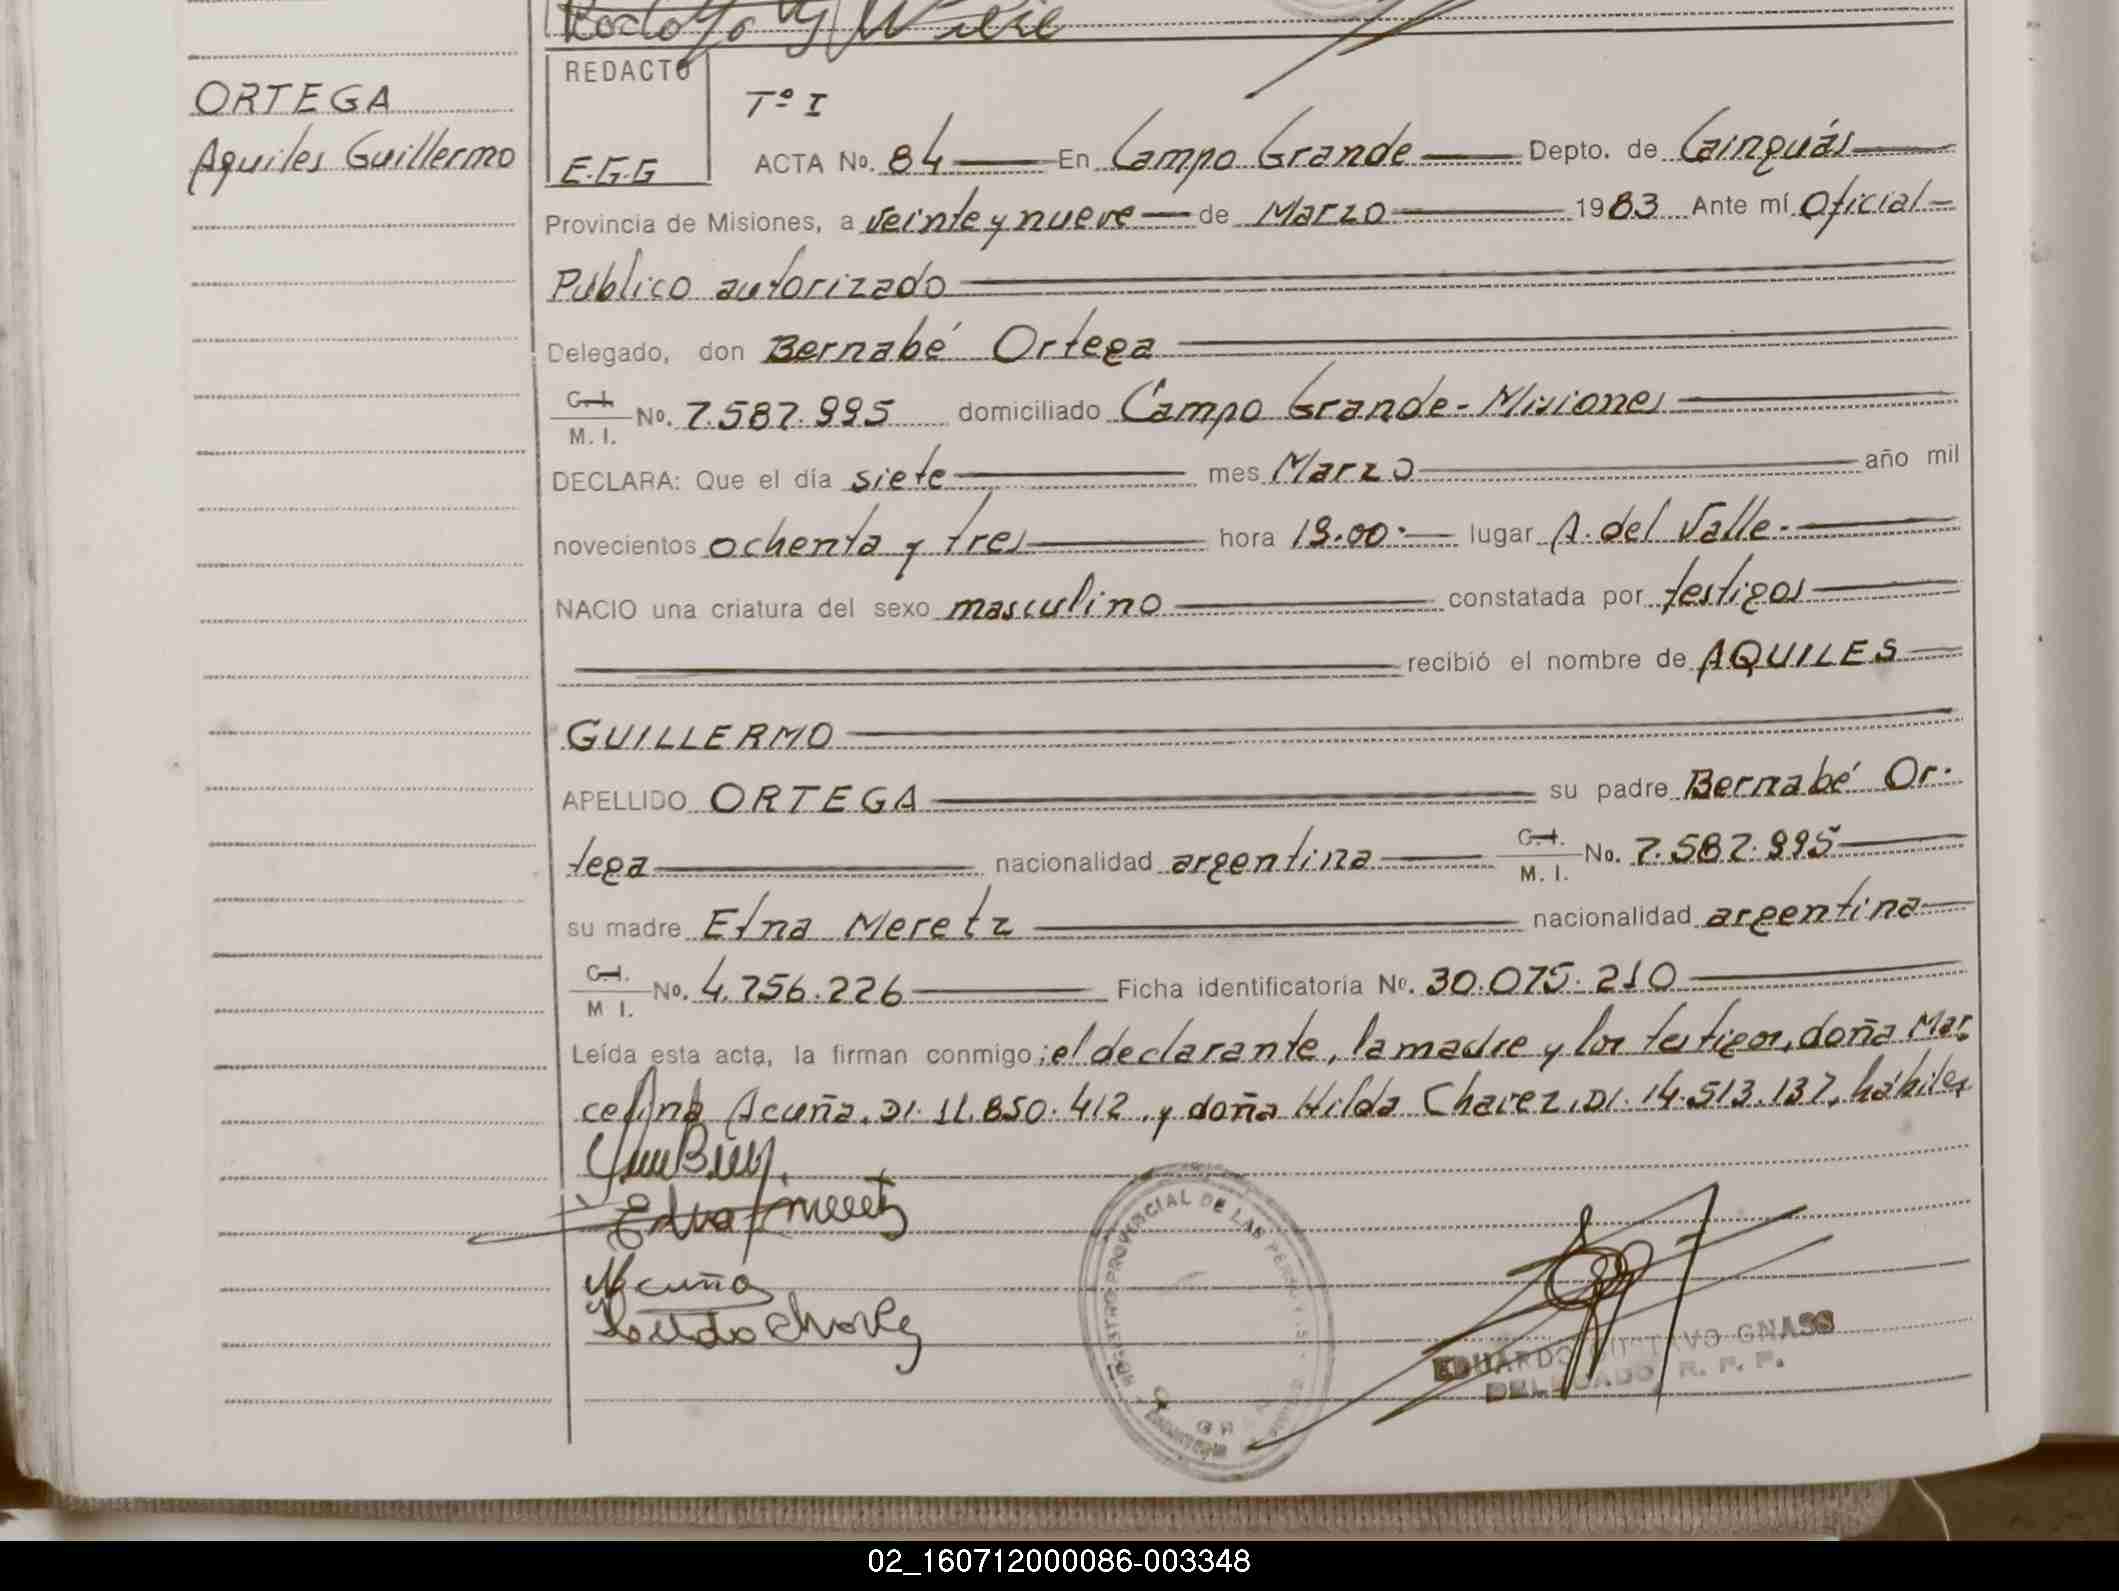 Rodolfo
ORTEGA
Aquiles Guillermo
REDACTO
E.G.G
Tº I
ACTA No. 84 En Campo Grande Depto. de Cainguás
Provincia de Misiones, a veinte y nueve de Marzo 1983 Ante mí Oficial
Público autorizado
Delegado, don Bernabé Ortega
C.I. M. I. No. 7.587.995 domiciliado Campo Grande - Misiones
DECLARA: Que el día siete mes Marzo año mil
novecientos ochenta y tres hora 19.00 lugar A. del Valle.
NACIO una criatura del sexo masculino constatada por testigos
recibió el nombre de AQUILES
GUILLERMO
APELLIDO ORTEGA su padre Bernabé Or-
tega nacionalidad argentina C.I. M. I. No. 7.587.995
su madre Etna Meretz nacionalidad argentina
C.I. M I. No. 4.756.226 Ficha identificatoria Nº. 30.075.210
Leída esta acta, la firman conmigo; el declarante, la madre y los testigos, doña Mar-
celina Acuña, DI. 11.850.412, y doña Hilda Chavez, DI. 14.513.137, hábiles
Etna Meretz
Acuña
Hilda Chavez
REGISTRO PROVINCIAL DE LAS PERSONAS
MISIONES
EDUARDO GUSTAVO GNASS
DELEGADO, R. P. P.
02_160712000086-003348